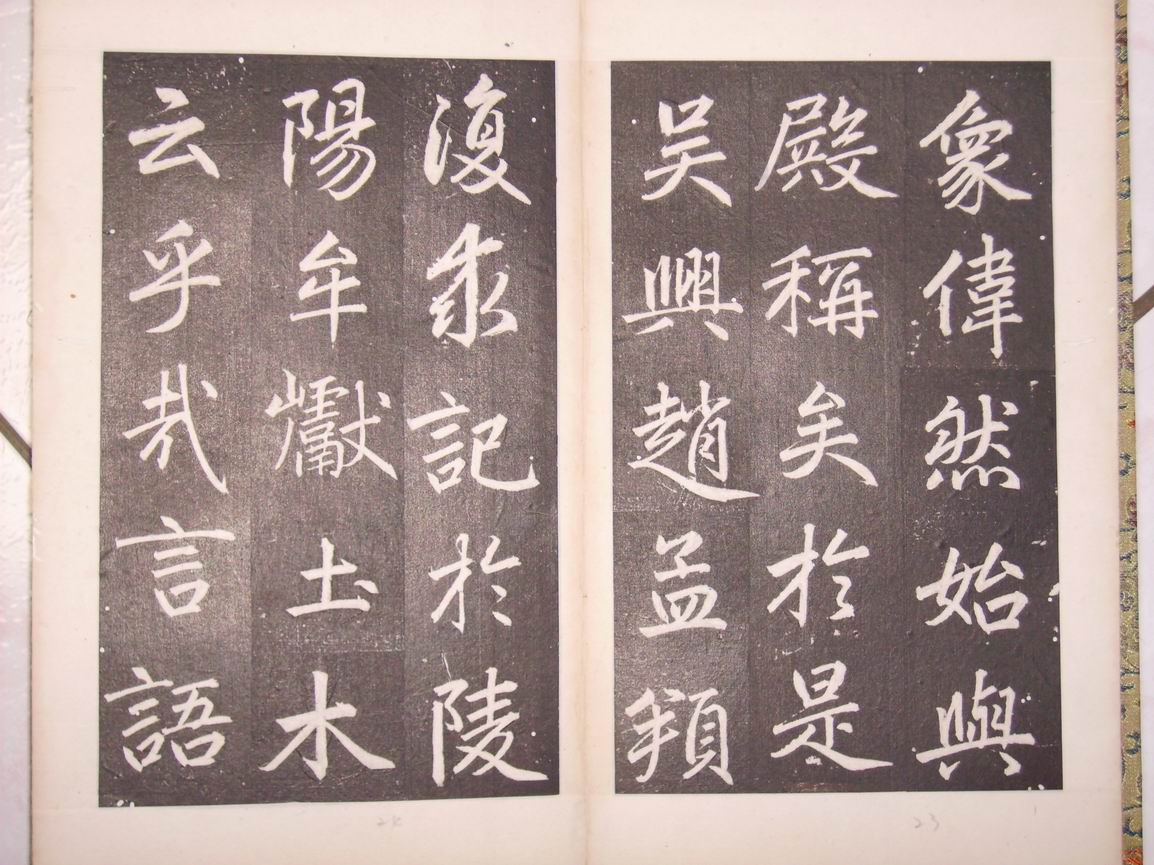 象偉然始與
殿稱矣於是
吳興趙孟頫
復求記於陵
陽牟巘土木
云乎哉言語
23
24